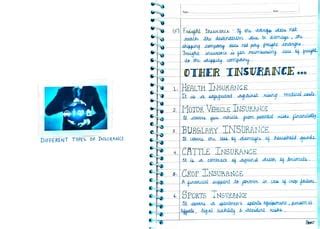 DIFFERENT TYPES OF INSURANCE
Freight Insurance If the cargo does not
reach the destination due to damage, the
shipping company does not pay freight charges.
Freight insurance is for reimbursing loss of freight
to the shipping company.
OTHER INSURANCE...
1. HEALTH INSURANCE
It is a safeguard against rising medical costs
2. MOTOR VEHICLE INSURANCE
It covers you vehicle from potential risks financially
3. BURGLARY INSURANCE
It covers the loss of damages of household goods
4. CATTLE INSURANCE
It is a contract of against death of animals.
5. CROP INSURANCE
A financial support to farmer in case of crop failure.
6. SPORTS INSURANCE
It covers a sportsmen's sports equipment, personal
effects, legal liability & accident risks.